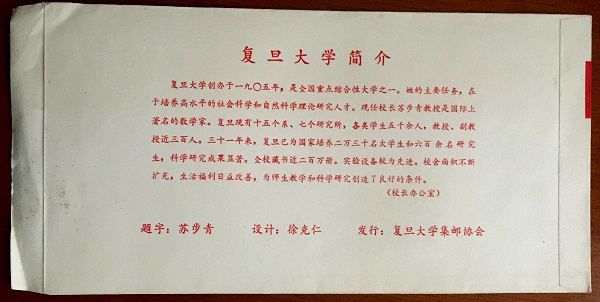 复旦大学简介
复旦大学创办于一九〇五年，是全国重点综合性大学之一。她的主要任务，在
于培养高水平的社会科学和自然科学理论研究人才。现任校长苏步青教授是国际上
著名的数学家。复旦现有十五个系、七个研究所，各类学生五千余人，教授、副教
授近三百人。三十一年来，复旦已为国家培养二万三千名大学生和六百余名研究
生，科学研究成果显著。全校藏书近二百万册。实验设备较为先进。校舍面积不断
扩充，生活福利日益改善，为师生教学和科学研究创造了良好的条件。
（校长办公室）
题字：苏步青 设计：徐克仁 发行：复旦大学集邮协会